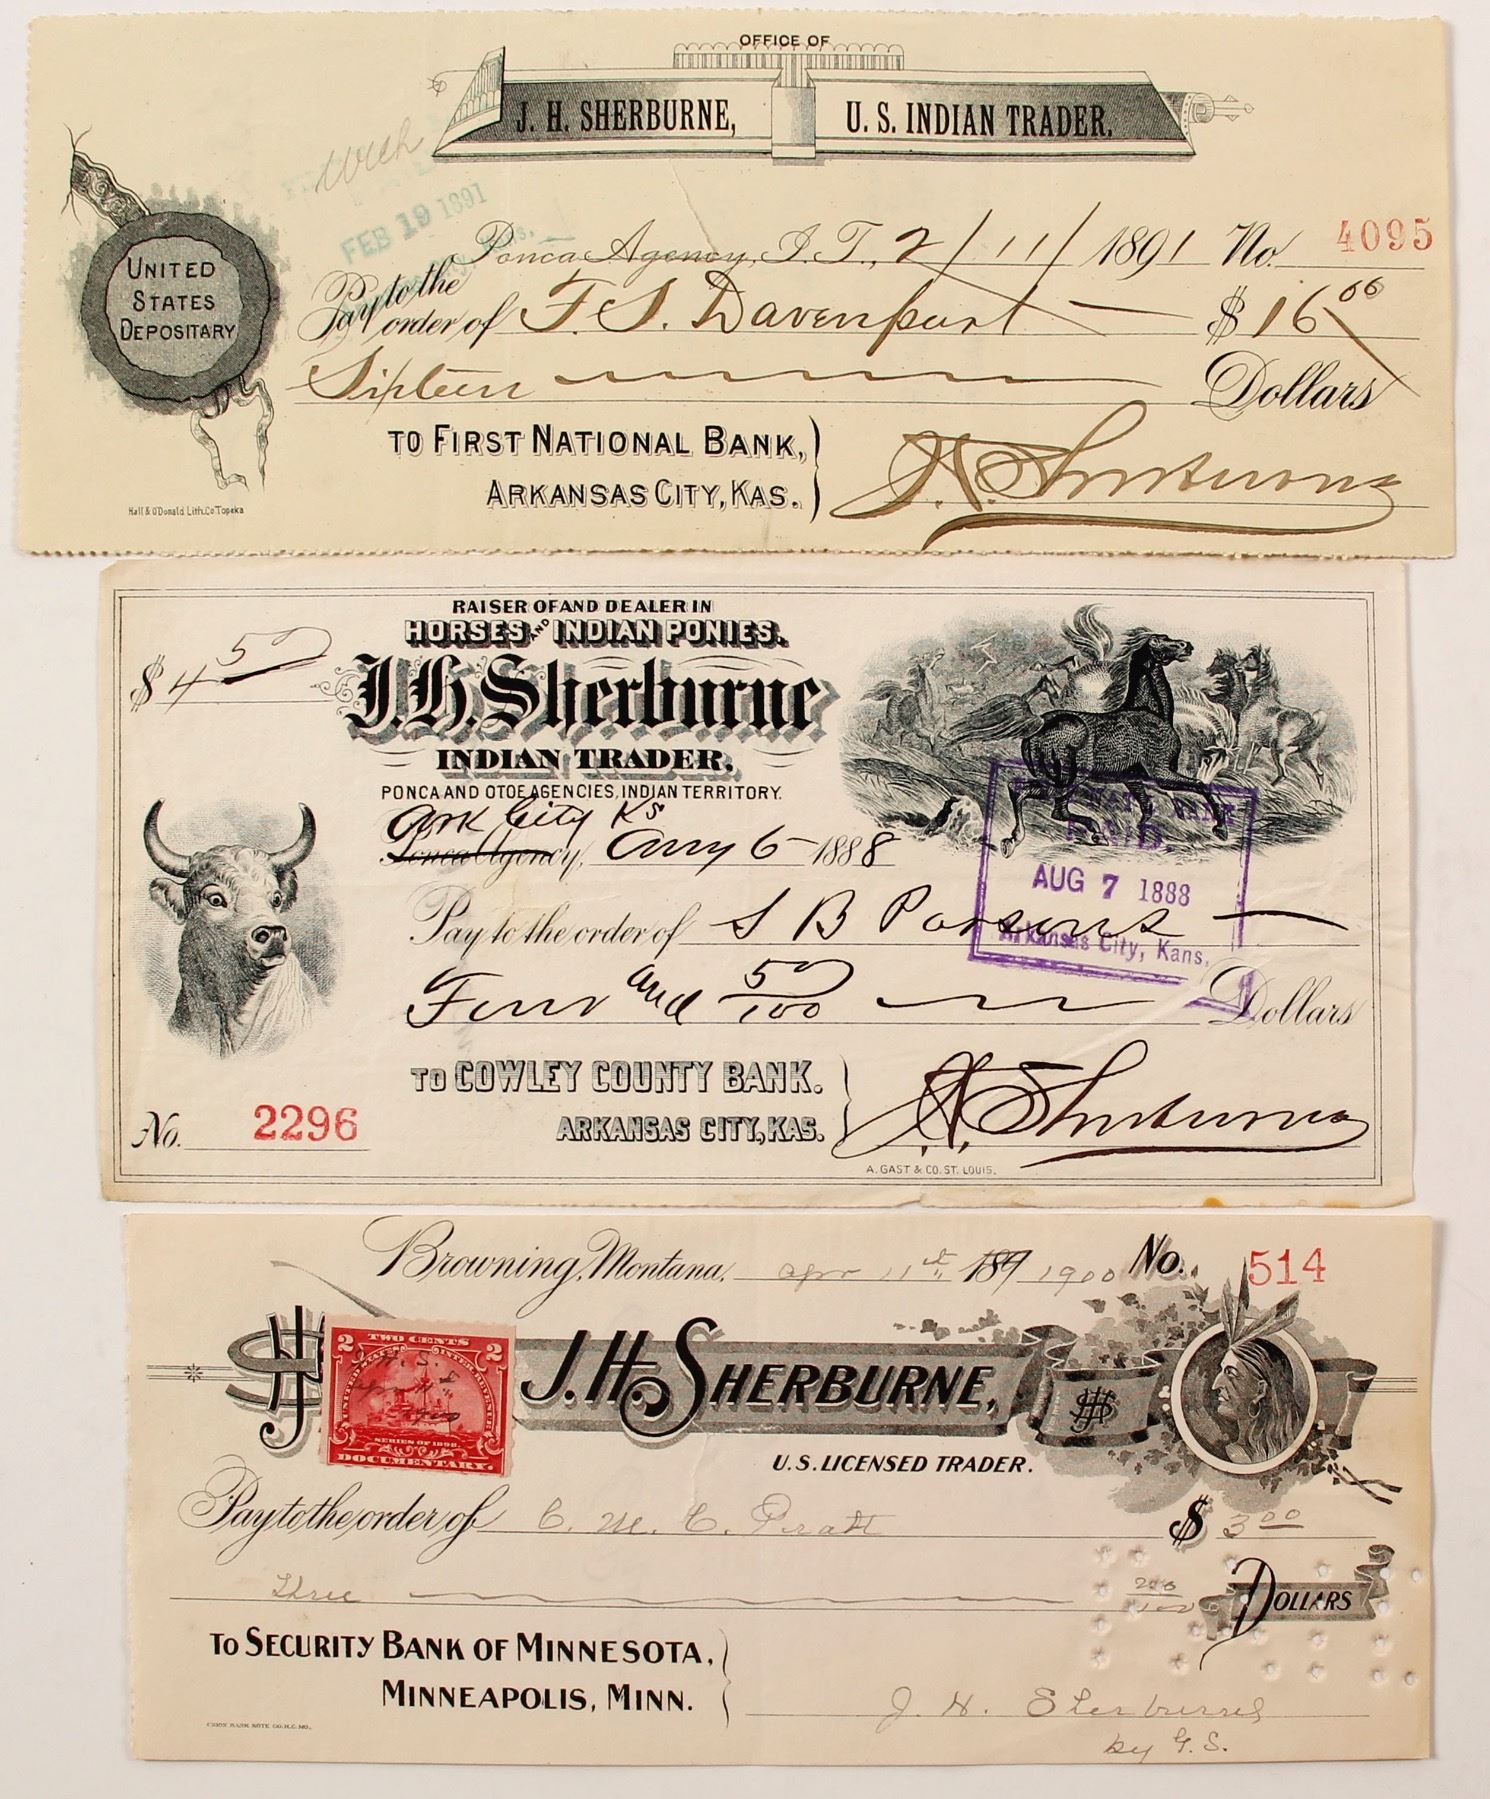 OFFICE OF
J. H. SHERBURNE, U. S. INDIAN TRADER.
FEB 19 1891
Ponca Agency, I. T., 2/11/1891 No. 4095
UNITED
STATES
DEPOSITARY
Pay to the
order of F. S. Davenport $16 00
Sixteen Dollars
TO FIRST NATIONAL BANK,
ARKANSAS CITY, KAS.
J. H. Sherburne
Hall & O'Donald Lith. Co Topeka
RAISER OF AND DEALER IN
HORSES AND INDIAN PONIES.
$4 50
J. H. Sherburne
INDIAN TRADER.
PONCA AND OTOE AGENCIES, INDIAN TERRITORY.
Ark City Ks
Ponca Agency, Aug 6 1888
AUG 7 1888
Arkansas City, Kans.
Pay to the order of S B Parsons
Four and 50/100 Dollars
TO COWLEY COUNTY BANK.
ARKANSAS CITY, KAS.
J. H. Sherburne
No. 2296
A. GAST & CO. ST. LOUIS.
Browning, Montana, Apr 11th 189 1900 No. 514
2 TWO CENTS 2
UNITED STATES INTER. REVENUE
J. H. S.
1900
SERIES OF 1898.
DOCUMENTARY.
J. H. SHERBURNE,
U. S. LICENSED TRADER.
Pay to the order of C. M. C. Pratt $ 3 00
Three DOLLARS
TO SECURITY BANK OF MINNESOTA,
MINNEAPOLIS, MINN.
J. H. Sherburne
by G. S.
UNION BANK NOTE CO. K.C. MO.